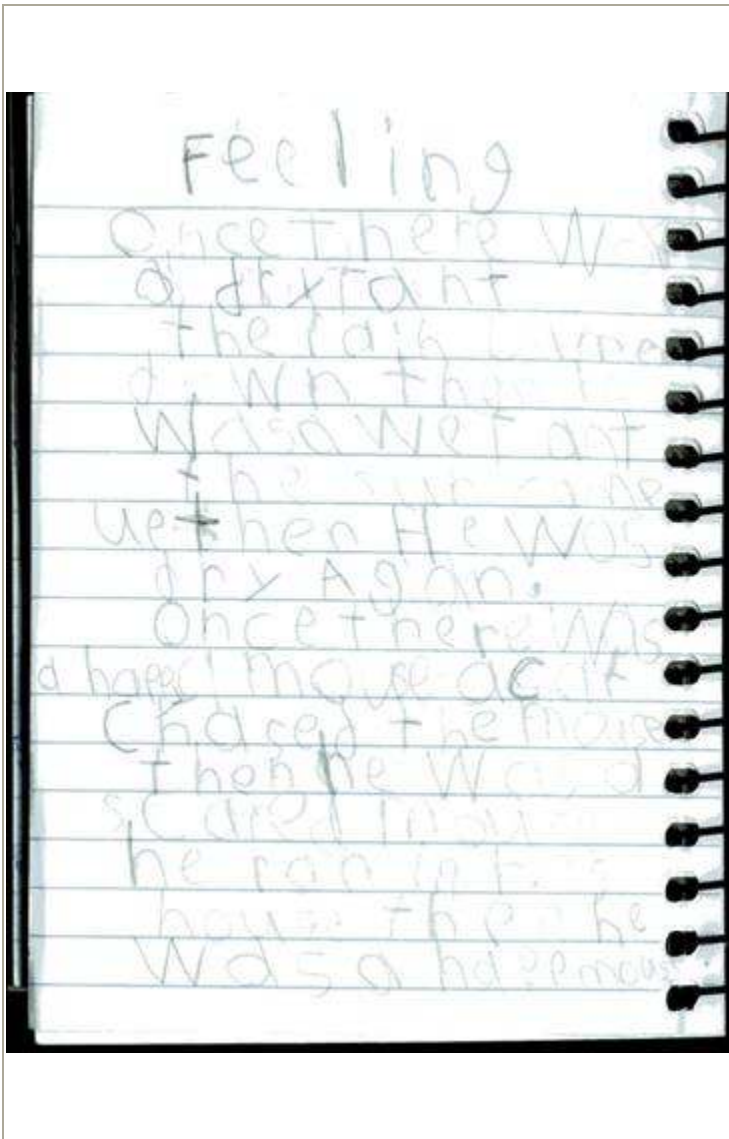 Feeling
Once There
a dry ant
the rain
down then
Was a Wet ant
the sun
up then He Was
dry Agan.
Once there Was
a mouse a cat
Chased the mouse
then he Was a
scared
he ran in
house then he
Was a mouse.